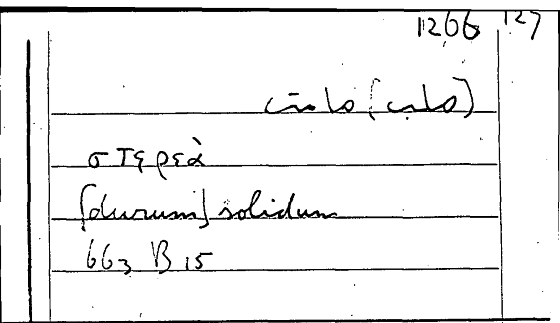 1266 127
(صلب) صامت
στερεὰ
[durum] solidum
663 B 15